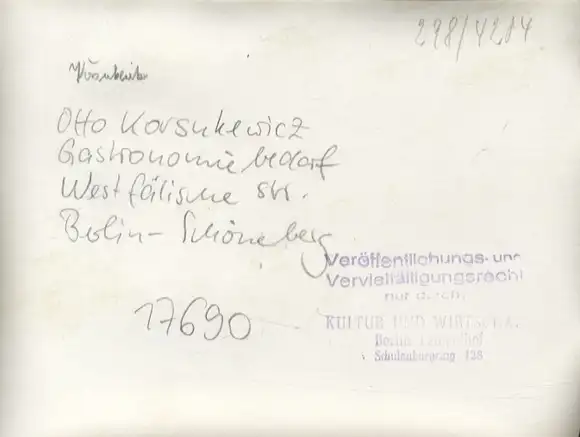 298/4284
Otto Korsukewicz
Gastronomiebedarf
Westfälische Str.
Berlin-Schöneberg
17690
Veröffentlichungs- und
Vervielfältigungsrecht
nur durch:
KULTUR UND WIRTSCHA
Berlin-Tempelhof
Schulenburgring 126